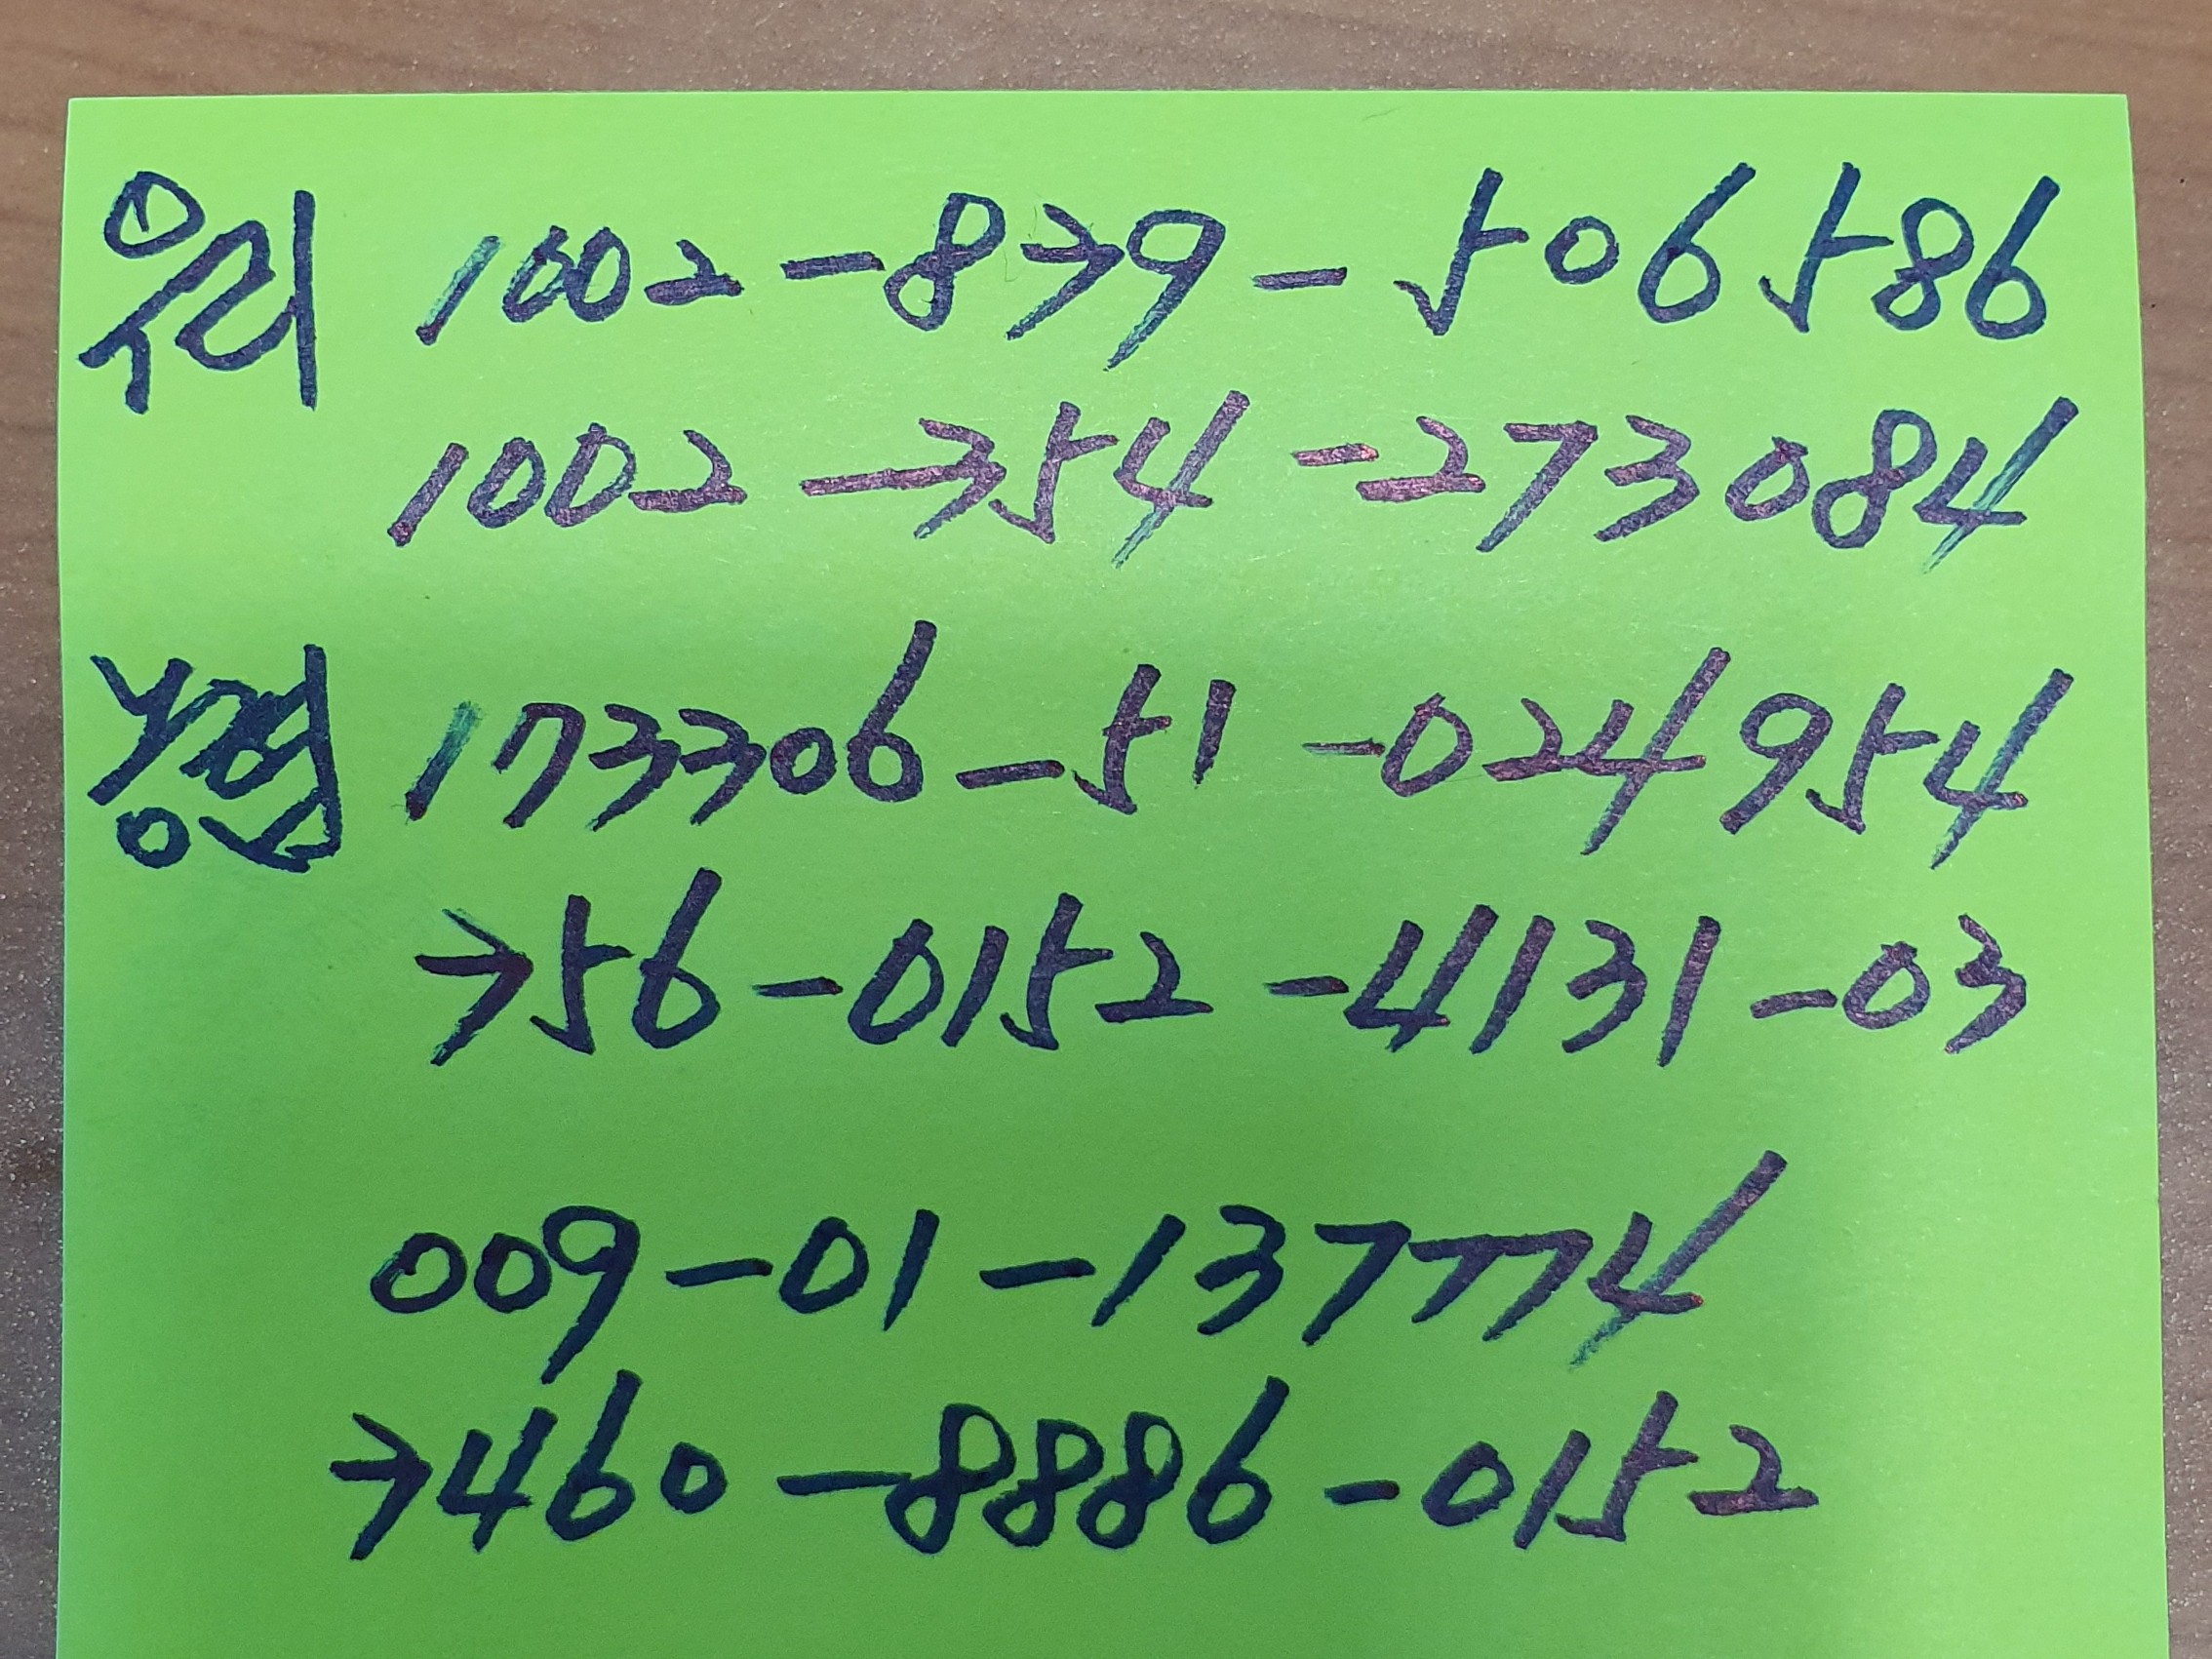 우리 1002-839-506586
1002-354-273084
농협 173306-51-024954
356-0152-4131-03
009-01-137774
3460-8886-0152